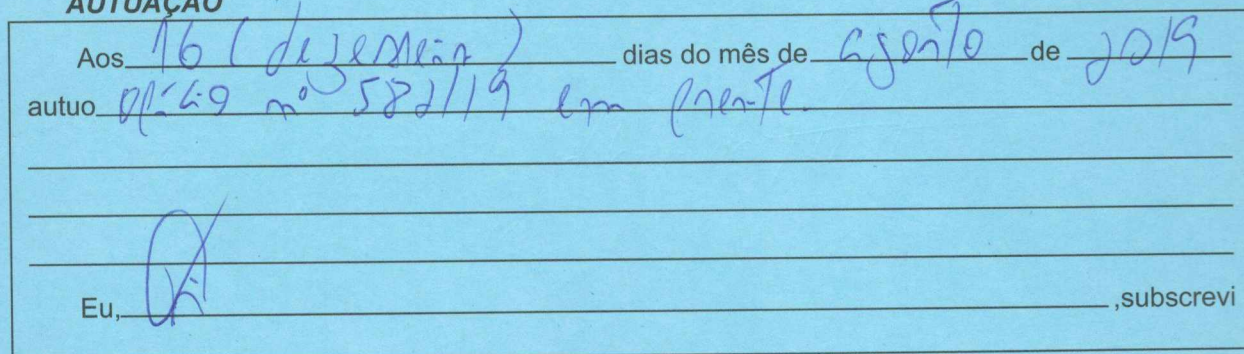 AUTUAÇÃO
Aos 16 (dezesseis) dias do mês de agosto de 2019
autuo ofício nº 582/19 em frente.
Eu, ,subscrevi